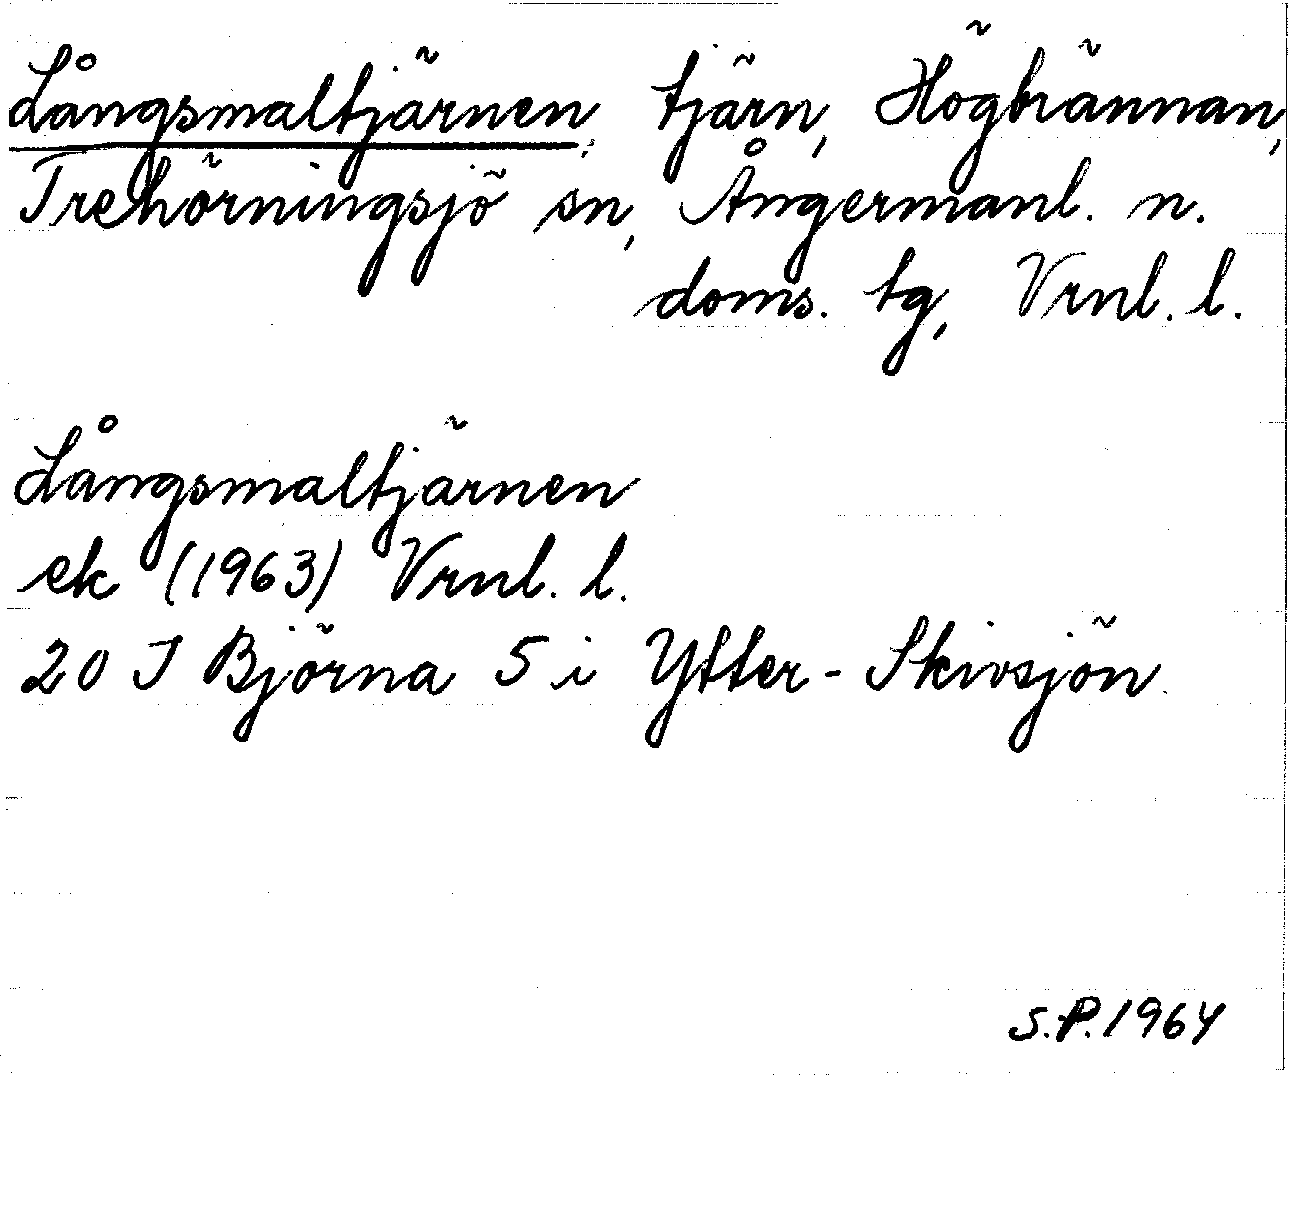 Långsmaltjärnen, tjärn, Högbrännan,
Trehörningsjö sn, Ångermanl. n.
doms. tg, Vrnl. l.
Långsmaltjärnen
ek (1963) Vrnl. l.
20 J Björna 5 i Ytter-Skivsjön
S.P. 1964